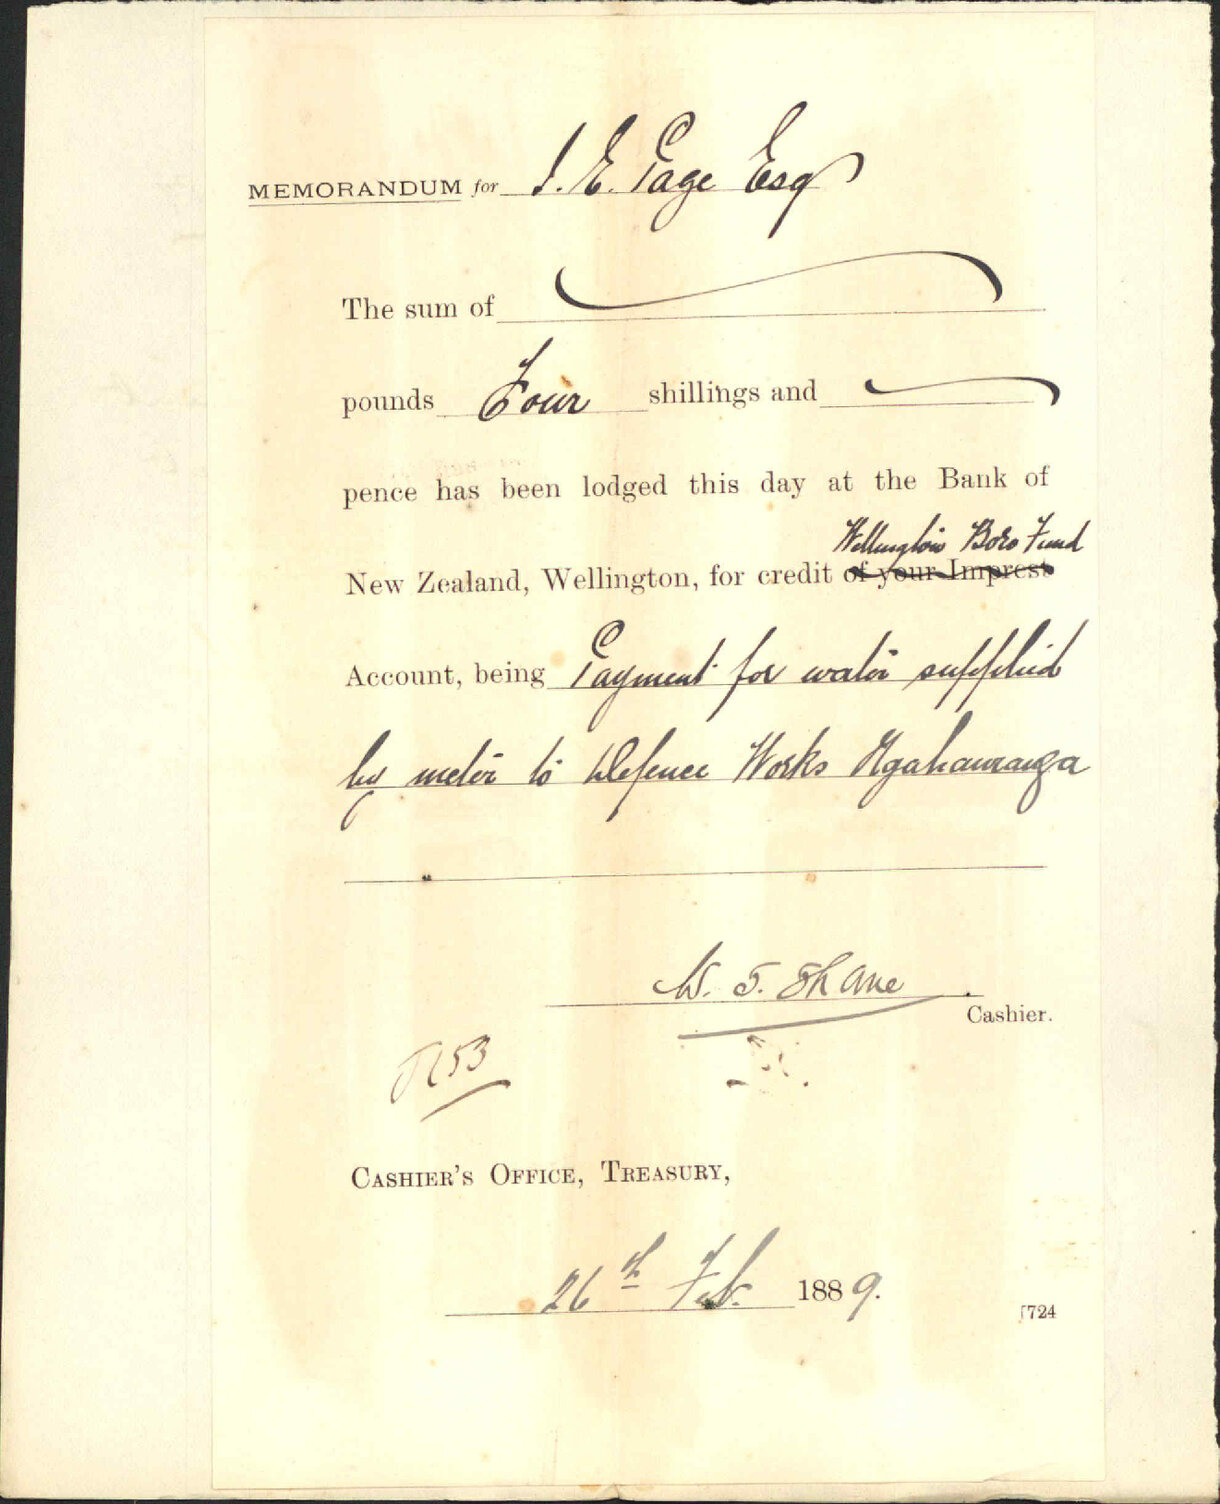 MEMORANDUM for J. E. Page Esq
The sum of
pounds Four shillings and
pence has been lodged this day at the Bank of
Wellington Boro Fund
New Zealand, Wellington, for credit of your Imprest
Account, being Payment for water supplied
by meter to Defence Works Ngahauranga
Cashier.
CASHIER'S OFFICE, TREASURY,
26th Feb. 1889.
[724